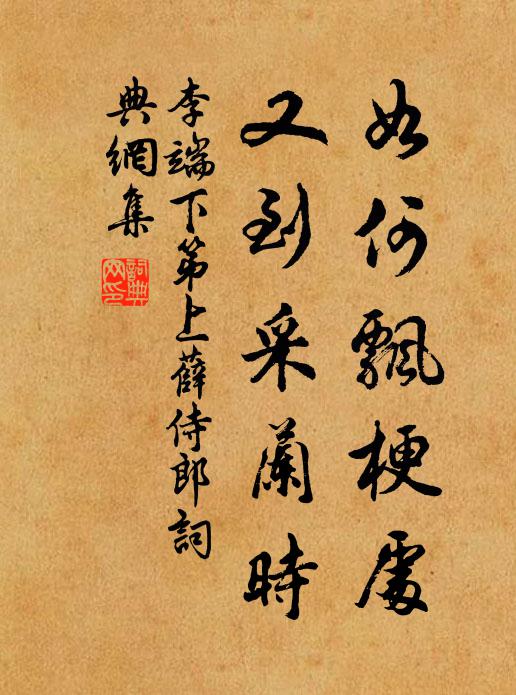 如何飄梗處
又到采蘭時
李端下第上薛侍郎詞
典網集
詞典網印